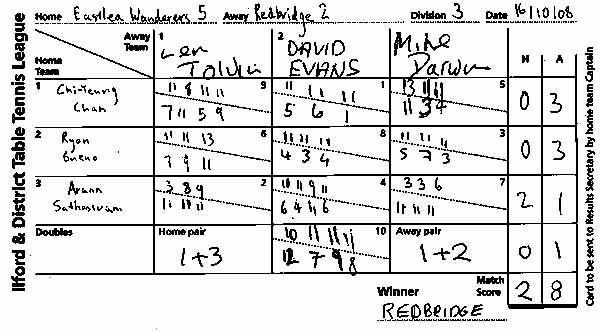 Ilford & District Table Tennis League
Home Eastlea Wanderers 5 Away Redbridge 2 Division 3 Date 16/10/08
Away Team
Home Team
1 Len Tolvin
2 DAVID EVANS
3 Mike Darwin
H A
1 Chi-Teung Chan
9 11 8 11 11
7 11 5 9
1 11 11 11
5 6 1
5 13 11 11
11 3 4
0 3
2 Ryan Bueno
6 11 11 13
7 9 11
8 11 11 11
4 3 4
3 11 11 11
5 7 3
0 3
3 Arann Sathasivam
2 3 8 9
11 11 11
4 10 11 9 11
6 4 11 6
7 3 3 6
11 11 11
2 1
Doubles
Home pair
1+3
10 10 11 11 11
12 7 9 8
Away pair
1+2
0 1
Winner REDBRIDGE
Match Score 2 8
Card to be sent to Results Secretary by home team Captain